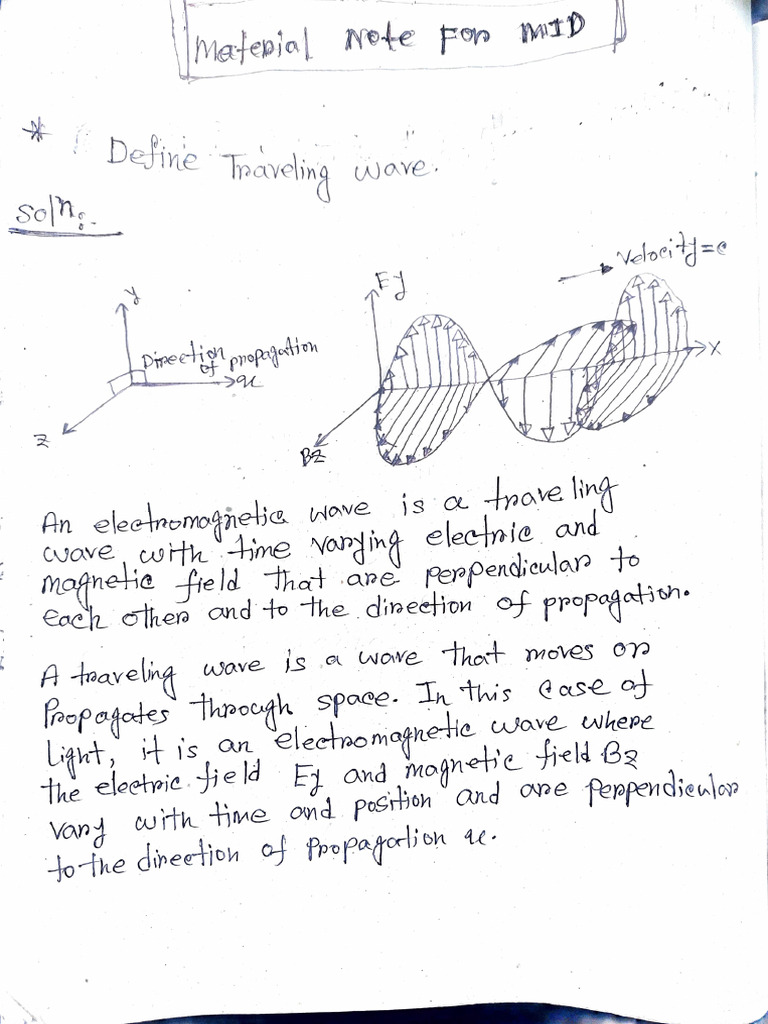 Material Note For MID
* Define Traveling wave.
Soln:-
y
Direction of propagation
x
z
Ey
Velocity=c
X
Bz
An electromagnetic wave is a traveling
wave with time varying electric and
magnetic field that are perpendicular to
each other and to the direction of propagation.
A traveling wave is a wave that moves or
Propagates through space. In this case of
Light, it is an electromagnetic wave where
the electric field Ey and magnetic field Bz
vary with time and position and are perpendicular
to the direction of Propagation x.